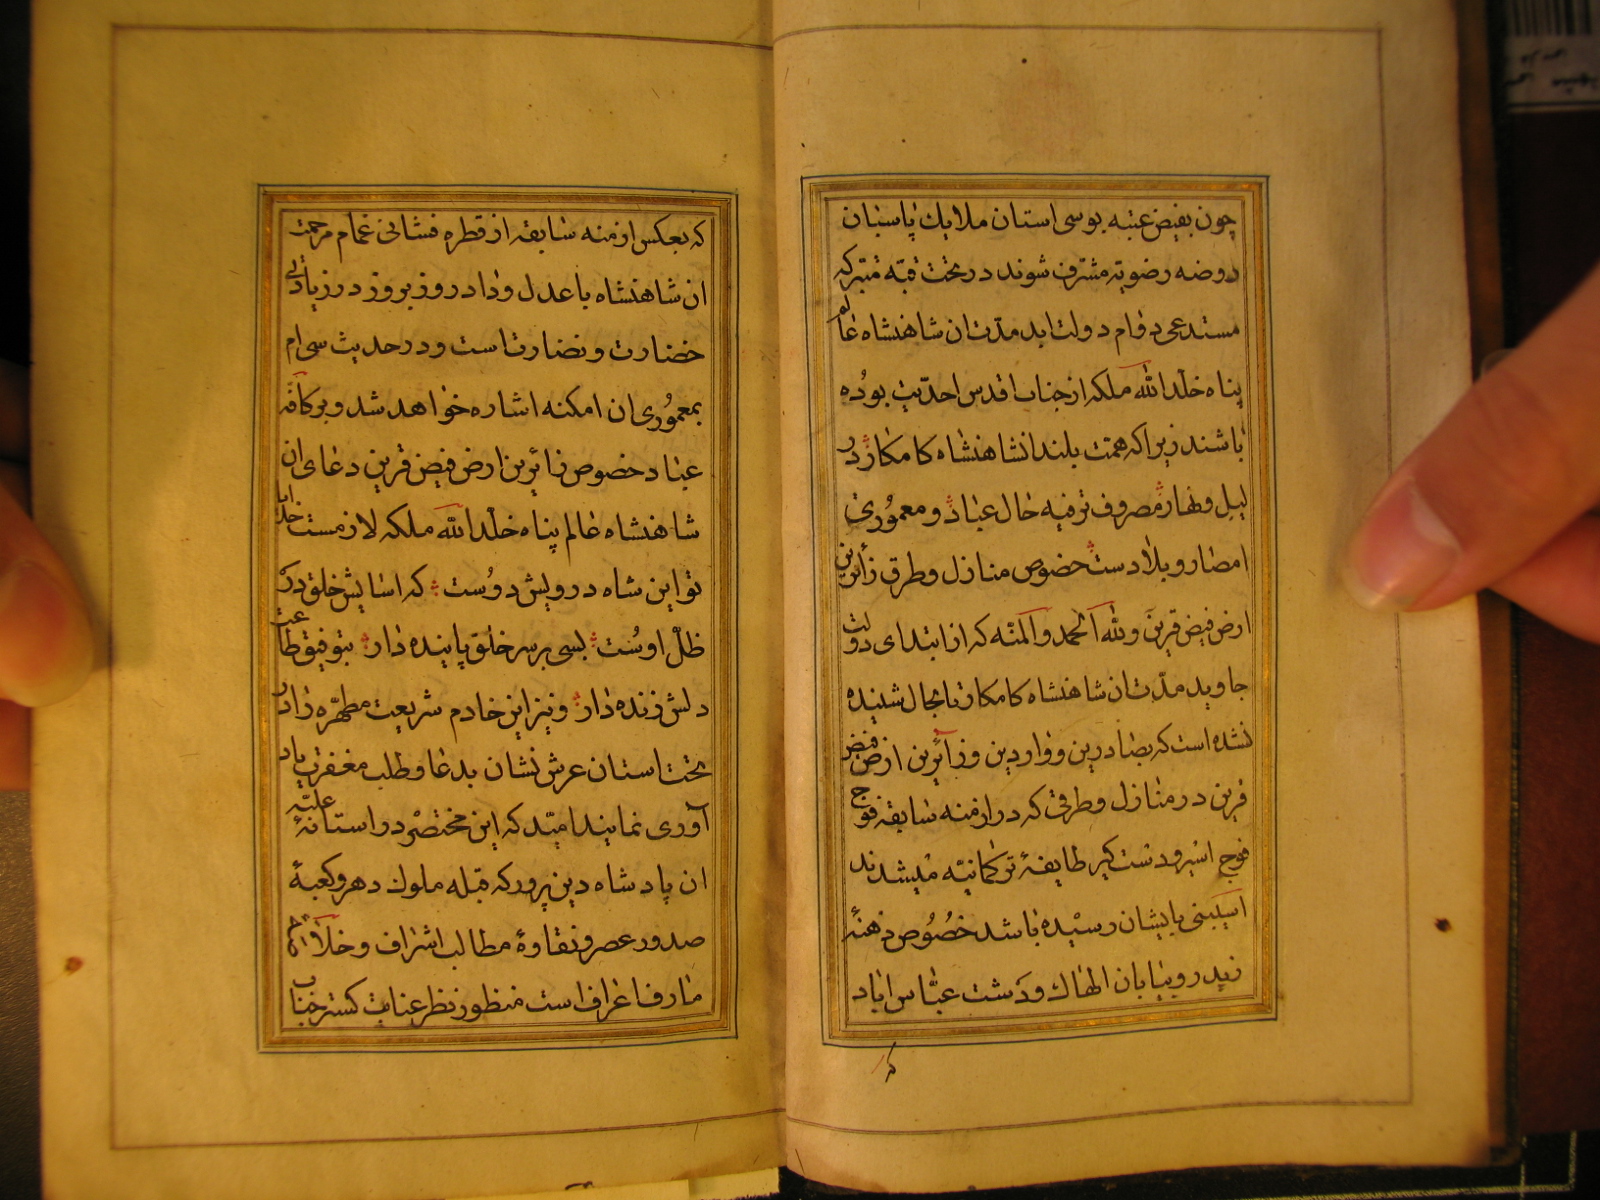 چون بفیض عتبه بوسی استان ملایك پاسبان
روضه رضویّه مشرّف شوند در تحت قبّه متبرّکه
مستدعی دوام دولت ابد مدّت ان شاهنشاه عالم
پناه خلّد الله ملکه از جناب اقدس احدّیت بوُده
باشند زیرا که همت بلند انشاهنشاه کامکار در
لیل و نهار مصروف ترفیه حال عباد و معموُری
امصار و بلاد ست خصوص منازل و طرق زائرین
ارض فیض قرین و لله الحمد و المنّه که از ابتدای دولت
جاوید مدّت ان شاهنشاه کامکار تا بحال شنیده
نشده است که بصادرین و واردین و زائرین ارض فیض
قرین در منازل و طرقی که در ازمنه سابقه فوج
فوج اسیر و دست کیر طایفهٔ ترکمانیّه میشدند
اسیبی بایشان رسیده باشد خصُوُص دهنهٔ
زیدر و بیابان الهاك و دَشت عبّاس اباد
که
که بعکس ازمنه سابقه از قطره فشانی غمام مرحمت
ان شاهنشاه با عدل و داد روز بروز در زیادتی
خضارت و نضارت است و در حدیث سی ام
بمعموُری ان امکنه اشاره خواهد شد و بر کافّه
عباد خصوص زائرین ارض فیض قرین دعای ان
شاهنشاه عالم پناه خلّد الله ملکه لازمست خدایا
تو این شاه درویش دوُست که اسایش خلق در
ظلّ اوُست بسی بر سر خلق پاینده دار بتوفیق طاعت
دلش زنده دار و نیز این خادم شریعت مطهّره را در
تحت استان عرش نشان بدعا و طلب مغفرت یاد
آوری نمایند امیّد که این مختصر در استانهٔ علیّه
ان پادشاه دین پرور که قبله ملوك دهر و کعبهٔ
صدور عصر و نقاوهٔ مطالب اشراف و خلاصه
مارف اعراف است منظور نظر عنایت کستر جناب